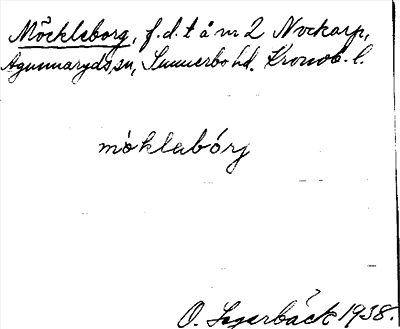 Möckleborg, f.d. t å nr 2 Nockarp,
Agunnaryds sn, Sunnerbo hd. Kronob. l.
mòklabórj
O. Segerbäck 1938.